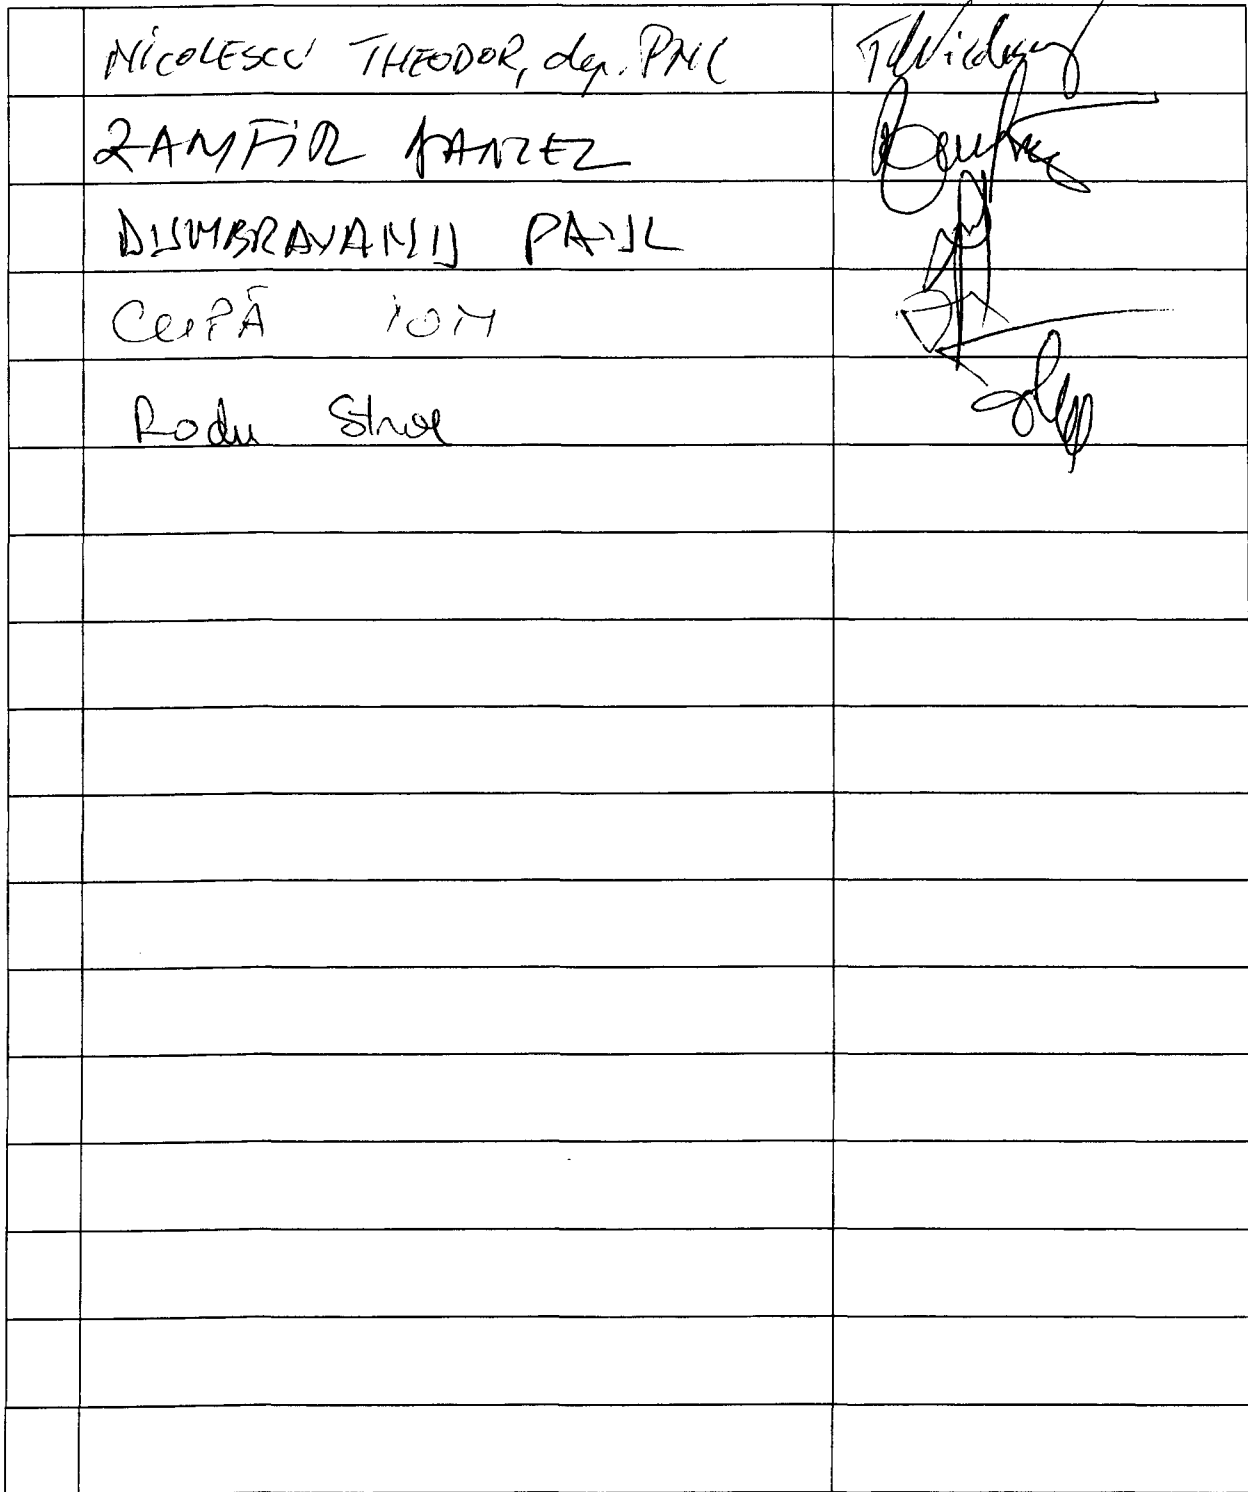 NICOLESCU THEODOR, dep. PNL
ZAMFIR DANIEL
DUMBRAVANU PAUL
CUPĂ ION
Radu Stroe